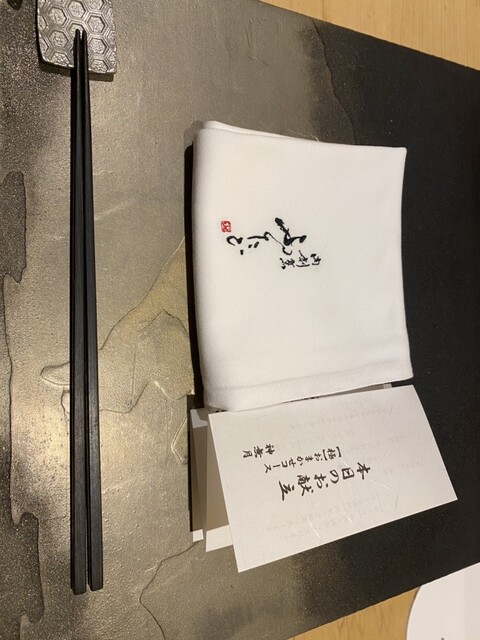 肉割烹
本日のお献立
【極】おまかせコース
神無月